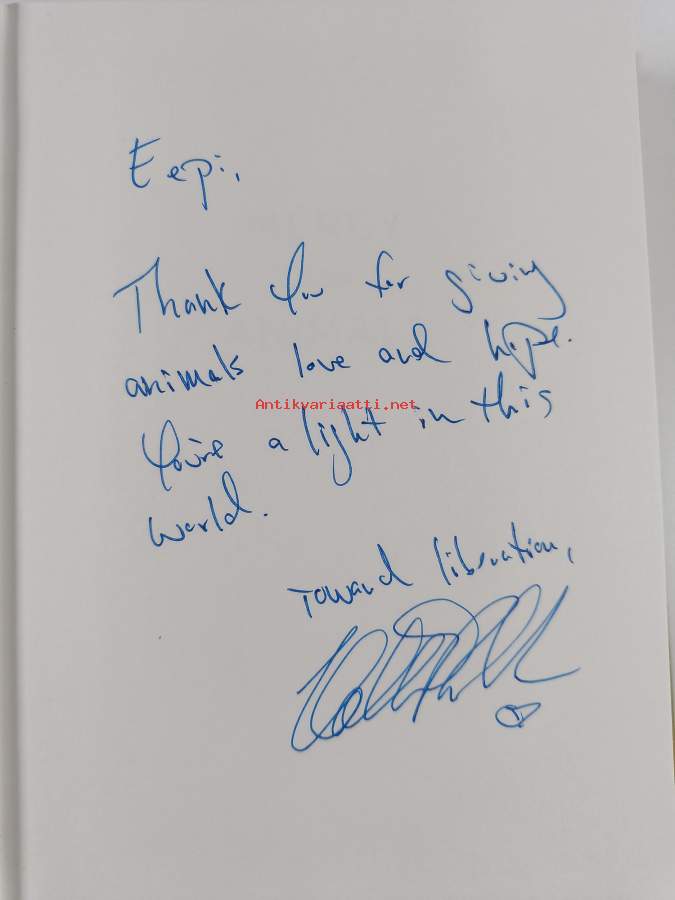 Eepi,
Thank You for giving
animals love and hope.
Antikvariaatti.net
You're a light in this
world.
Toward liberation,